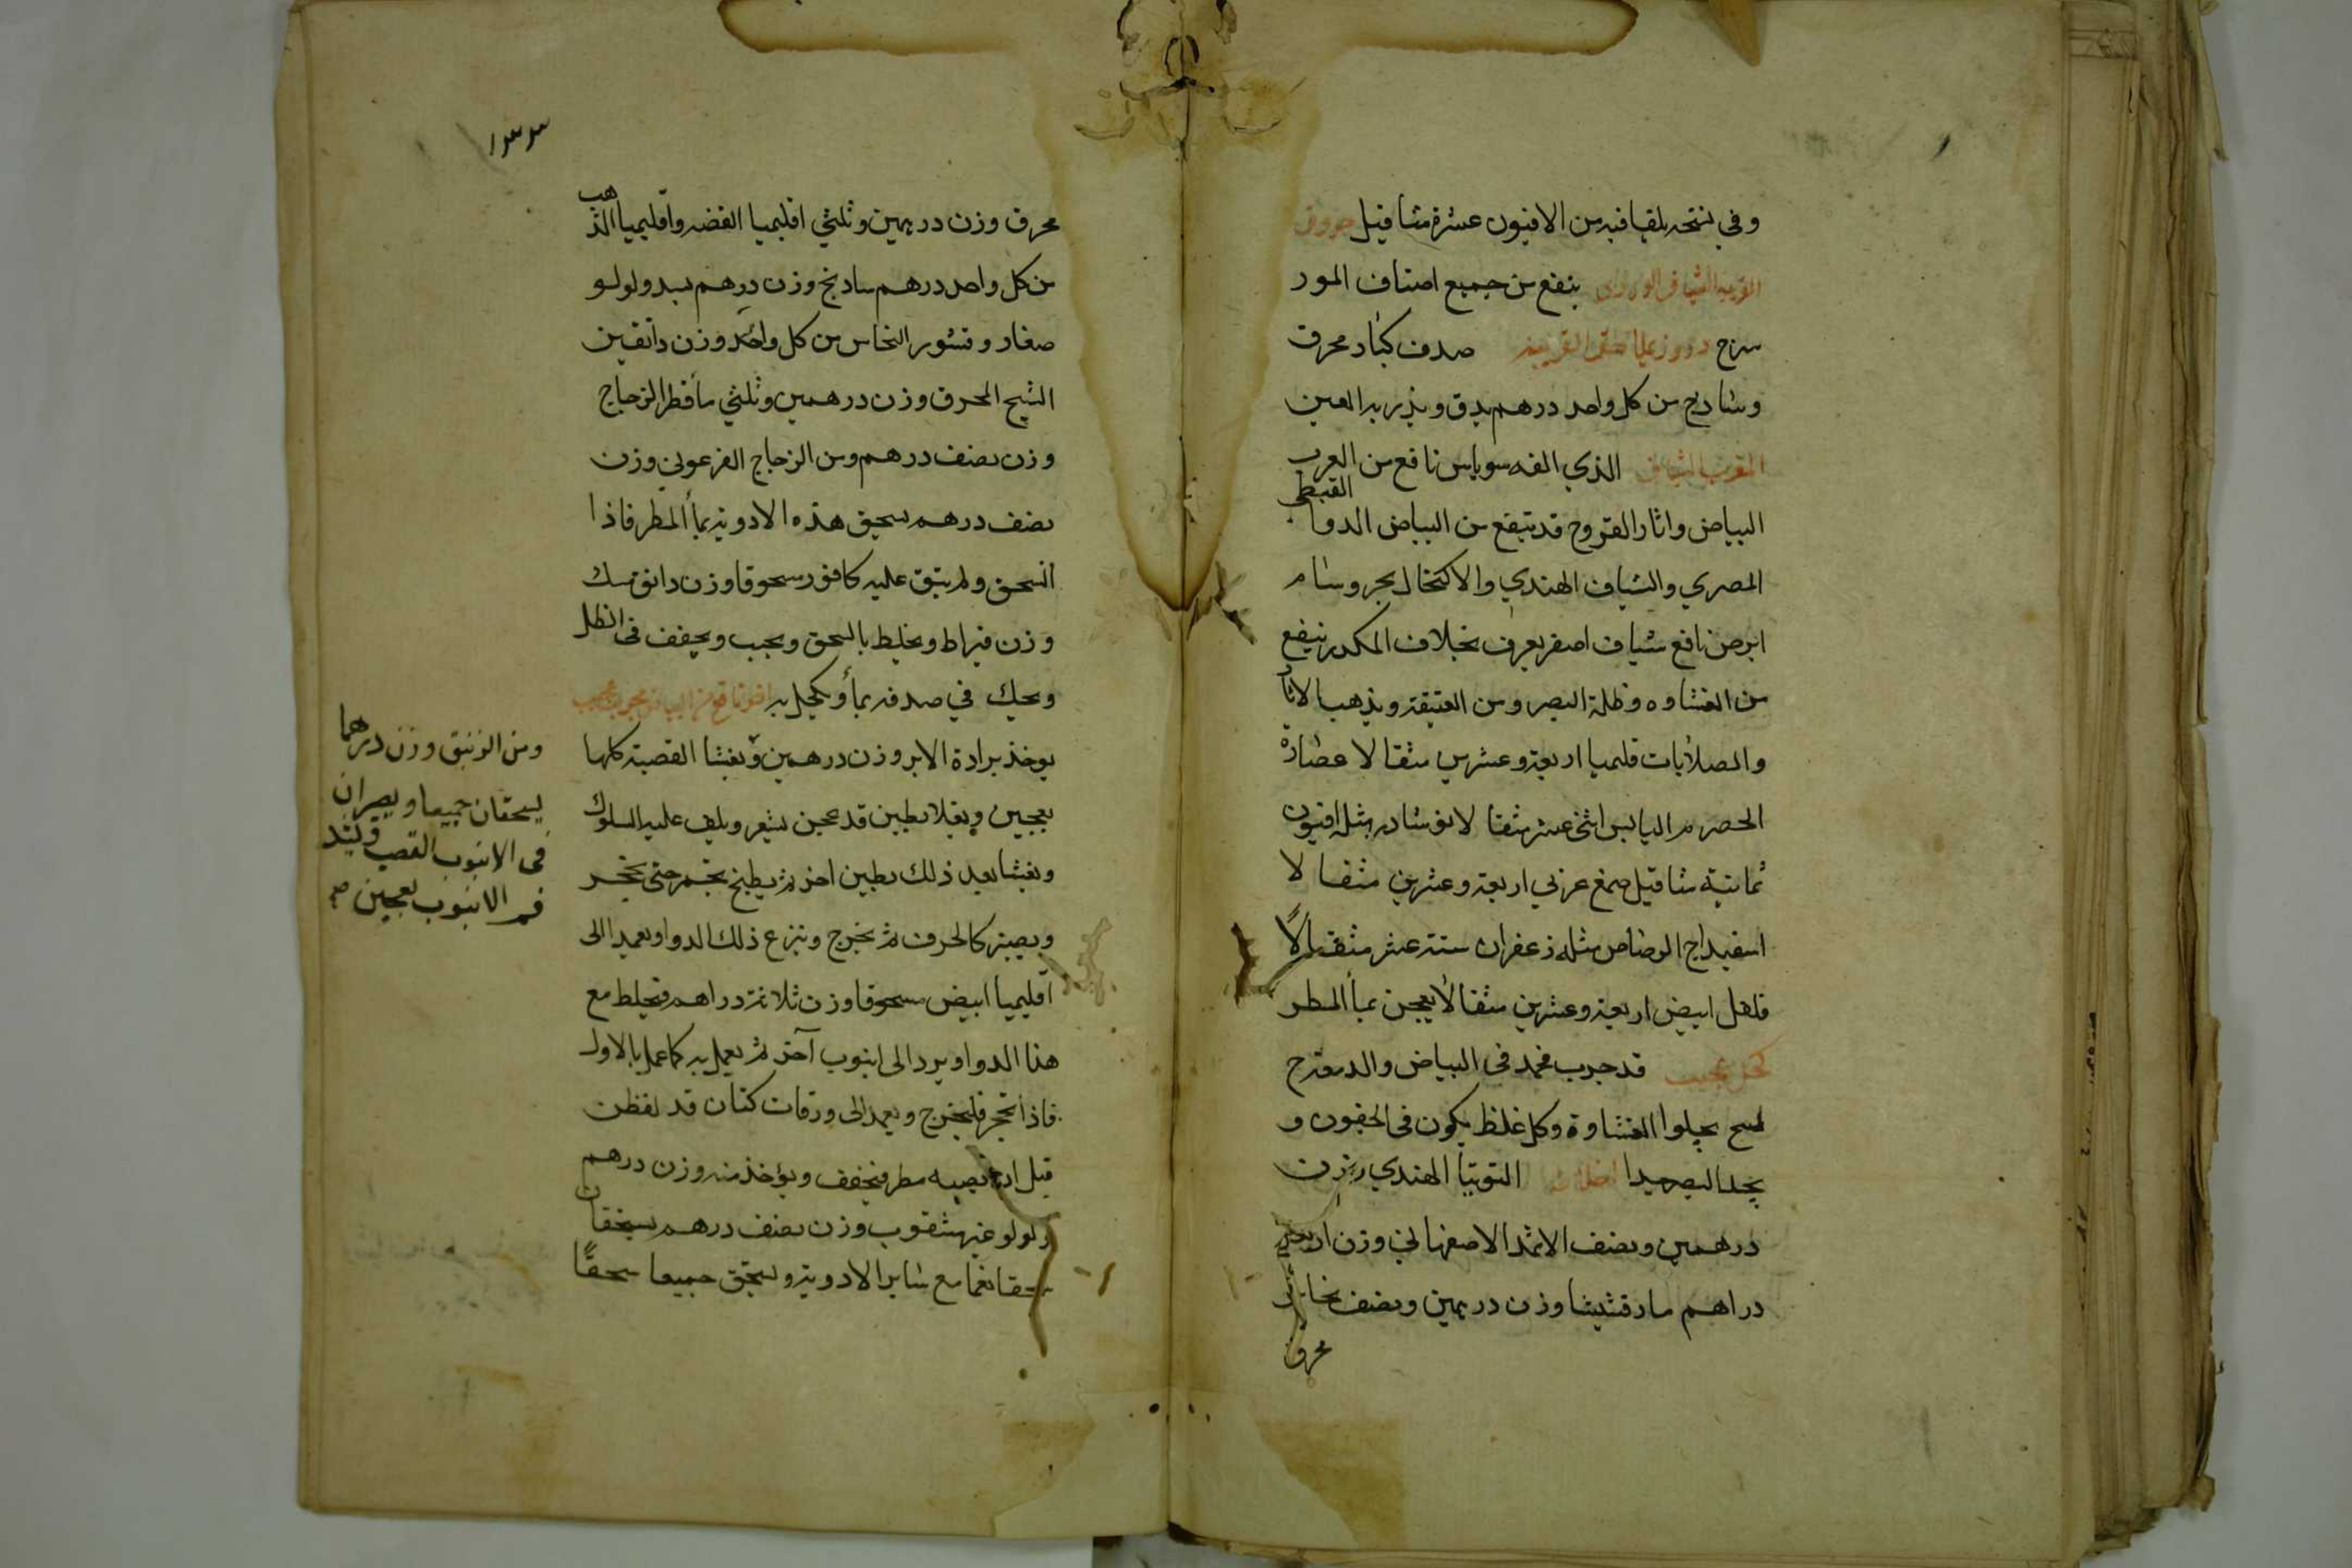 وفي نسخه يلقا فيه من الافيون عشرة مثاقيل
ينفع من جميع اصناف المور
سرج صدف كبار محرق
وشادنج من كل واحد درهم يدق ويذر به العين
الذي الفه سوباس نافع من العرب
القبطي
البياض واثار القروح قد تنفع من البياض الدوا
المصري والشياف الهندي والاكتحال بحر وسام
ابرص نافع شياف اصفر يعرف بخلاف المكدر ينفع
من الغشاوه وظلمة البصر ومن العتيقة ويذهب الاثار
والصلابات قليميا اربعة وعشرين مثقالا عصارة
الحصرم اليابس اثني عشر مثقالا نوشادر مثله افيون
ثمانية مثاقيل صمغ عربي اربعة وعشرين مثقالا
اسفيداج الرصاص مثله زعفران ستة عشر مثقالا
فلفل ابيض اربعة وعشرين مثقالا يعجن بمأ المطر
كحل عجيب قد جرب فحمد في البياض والدمعة
يجلوا الغشاوة وكل غلظ يكون في الجفون و
يحد البصر جيدا اخلاطه التوتيا الهندي وزن
درهمين ونصف الاثمد الاصفهاني وزن اربعة
دراهم مارقشيشا وزن درهمين ونصف نحاس
محرق
١٣٣
محرق وزن درهمين وثلثي اقليميا الفضه واقليميا الذهب
من كل واحد درهم سادنج وزن درهم بسد ولولو
صغار وقشور النحاس من كل واحد وزن دانقين
الشيح المحرق وزن درهمين وثلثي مأ قطر الزجاج
وزن نصف درهم ومن الزجاج الفرعوني وزن
نصف درهم يسحق هذه الادوية بمأ المطر فاذا
انسحق ولم يبق عليه كافور مسحوقا وزن دانق مسك
وزن قيراط ويخلط بالسحق ويحبب ويجفف في الظل
ويحك في صدفه بمأ ويكحل به اخر نافع من البياض مجرب عجيب
يوخذ برادة الابر وزن درهمين ويغشا القصبة كلها
بعجين ويغلا بطين قد عجن بشعر ويلف عليه السلوك
ويغشا بعد ذلك بطين اخر ثم يطبخ بجمر حتى يتحجر
ويصير كالخزف ثم يخرج وينزع ذلك الدوا ويعمد الى
اقليميا ابيض مسحوقا وزن ثلاثة دراهم فيخلط مع
هذا الدوا ويرد الى انبوب آخر ثم يعمل به كما عمل بالاول
فاذا تحجر فليخرج ويعمد الى ورقات كتان قد لقطن
قبل ان يصيبه مطر فيجفف ويؤخذ منه وزن درهم
ولولو غير مثقوب وزن نصف درهم يسحقان
سحقا ناعما مع ساير الادوية ويسحق جميعا سحقًا
ومن الزئبق وزن درهما
يسحقان جميعا ويصيران
في الانبوب القصب ويشد
فم الانبوب بعجين صح